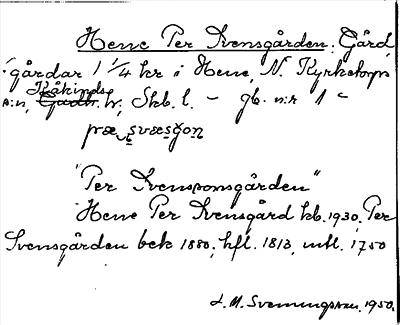 Hene Per Svensgården: Gård,
gårdar 1 1/4 kr i Hene, N. Kyrketorps
Kåkinds
s:n, Gudh. hr, Skb. l. – gb. n:r 1 –
pæ, svæsgo̱n
"Per Svensonsgården"
Hene Per Svensgård kb. 1930, Per
Svensgården bek 1880, hfl. 1813, mtl. 1750
L. M. Svenungsson. 1950.